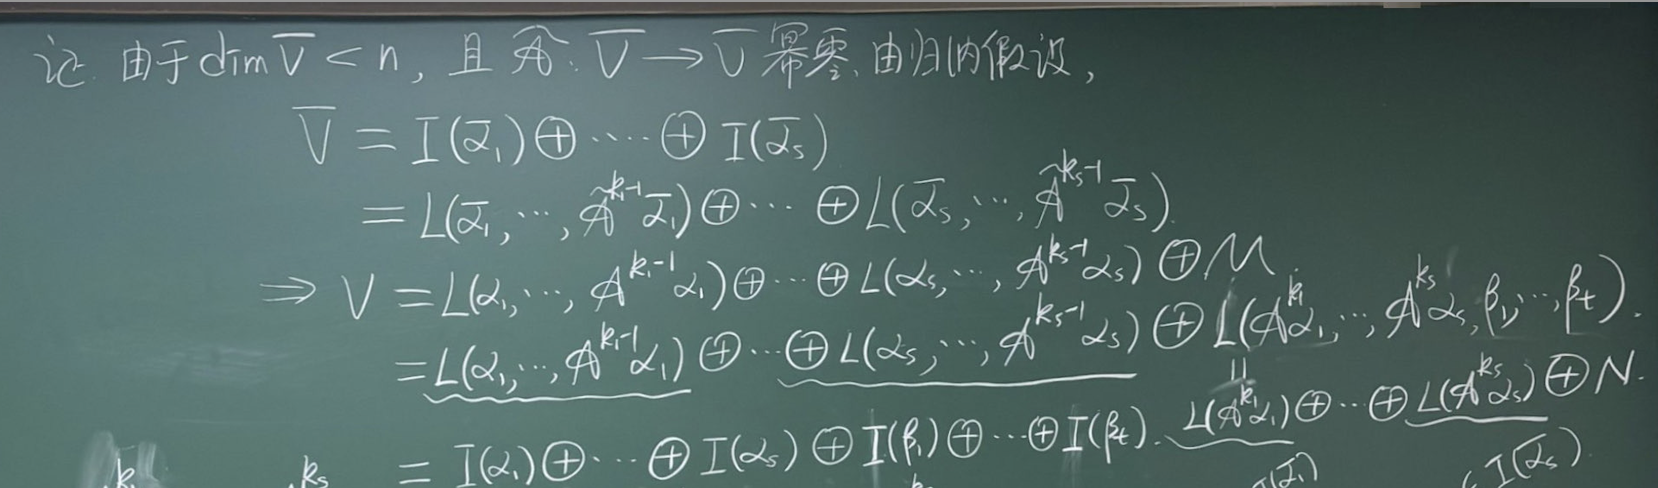 记. 由于dim V̅ < n, 且 Ã: V̅ → V̅ 幂零, 由归纳假设,
V̅ = I(ᾱ₁) ⊕ ⋯⋯ ⊕ I(ᾱₛ)
= L(ᾱ₁, ⋯, Ã^{k₁-1} ᾱ₁) ⊕ ⋯ ⊕ L(ᾱₛ, ⋯, Ã^{kₛ-1} ᾱₛ).
⇒ V = L(α₁, ⋯, A^{k₁-1} α₁) ⊕ ⋯ ⊕ L(αₛ, ⋯, A^{kₛ-1} αₛ) ⊕ M
= L(α₁, ⋯, A^{k₁-1} α₁) ⊕ ⋯ ⊕ L(αₛ, ⋯, A^{kₛ-1} αₛ) ⊕ L(A^{k₁} α₁, ⋯, A^{kₛ} αₛ, β₁, ⋯, βₜ).
||
L(A^{k₁} α₁) ⊕ ⋯ ⊕ L(A^{kₛ} αₛ) ⊕ N.
= I(α₁) ⊕ ⋯ ⊕ I(αₛ) ⊕ I(β₁) ⊕ ⋯ ⊕ I(βₜ).
k₁ kₛ I(ᾱ₁) I(ᾱₛ)